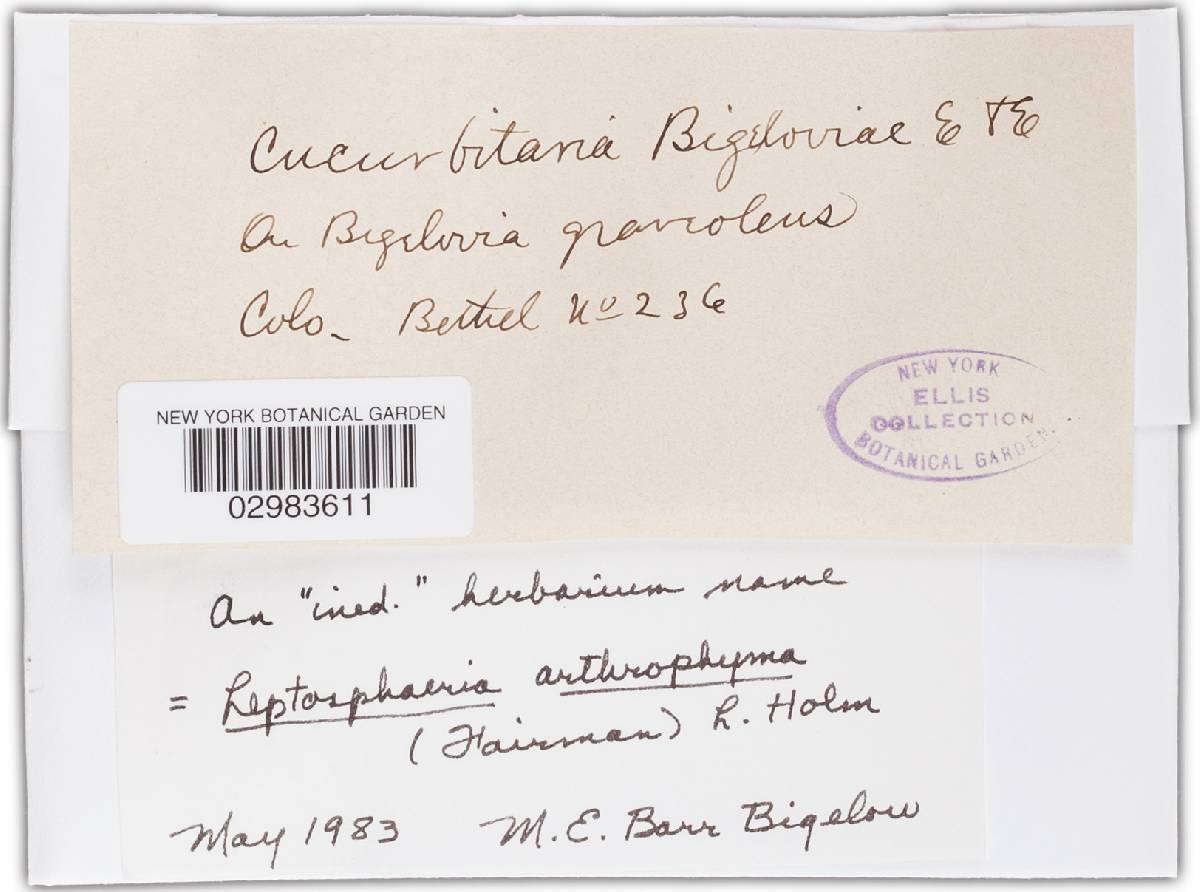 Cucurbitaria Bigeloviae E & E
On Bigelovia graveolens
Colo_ Bethel No 236
NEW YORK
ELLIS
COLLECTION
BOTANICAL GARDEN.
NEW YORK BOTANICAL GARDEN
02983611
An "ined." herbarium name
= Leptosphaeria arthrophyma
(Fairman) L. Holm
May 1983 M.E. Barr Bigelow